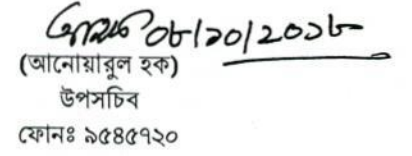 ০৮/১০/২০১৮
(আনোয়ারুল হক)
উপসচিব
ফোনঃ ৯৫৪৫৭২০